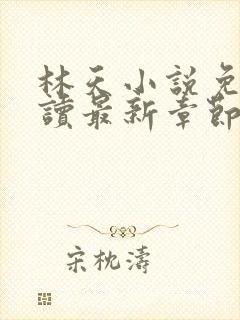 林天小説免
讀最新章節
宋枕濤